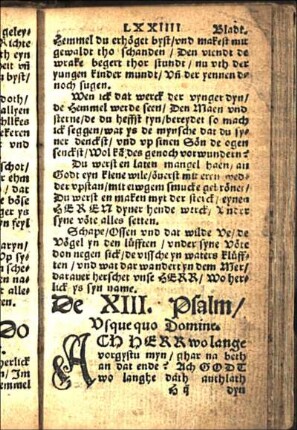 LXXIIII Bladt.
Hemmel du erhöget byst/vnd makest mit
gewaldt tho schanden / Den viendt de
wrake begert thor stundt / nu vth der
yungen kinder mundt/ Vn̄ der yennen de
noch sugen.
Wen ick dat werck der vynger dyn/
de Hemmel werde seen/ Den Maen vnd
sterne/de du hefft tyn/bereydet so mach
ick seggen/wat ys de mynsche dat du sy-
ner denckst/ vnd vp sinen Sön de ogen
senckst/Wol k̄ des genoch vorwunden?
Du werst en laten mangel haen/ an
Godt eyn kleine wile/ öuerst mit eren
der vpstan/mit eiwgem smucke
Du werst en maken myt der sterck/ eynen
HEREN dyner hende werck/ Vnder
syne vöte alles setten.
Schape/Ossen vnd dat wilde Ve/ de
Vögel yn den lüfften / vnder syne Vöte
don negen sick/de vissche yn waters klüff-
ten/vnd wat dar wandert yn dem Mer/
dar auer herscher vnse HERR/ Wo her-
lick ys syn name.
De XIII. Psalm/
Vsquequo Domine.
ACH HERR wo lange
vorgystu myn/ ghar na beth
an dat ende? Ach GODT
wo langhe däth anthlath
H ij dyn
geley-
Richte
th eyn
byst/
doth/
allyen
ekeren
vnd
schot/
r ehm
/ dat
böse
ys
feyl
aryn/
Vp sy-
schen
n na-
alles
en.
Do
herlick
/Im
emmel